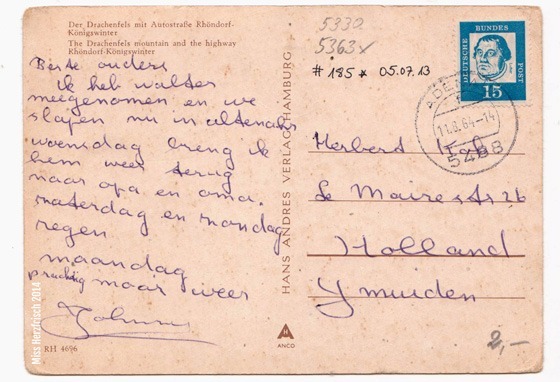 Der Drachenfels mit Autostraße Rhöndorf-
Königswinter
The Drachenfels mountain and the highway
Rhöndorf-Königswinter
Beste ouders
ik heb walter
meegenomen en we
slapen nu in altenahr
woensdag breng ik
hem weer terug
naar opa en oma.
zaterdag en zondag
regen
maandag
prachtig maar weer
RH 4696
Miss Herzfrisch 2014
HANS ANDRES VERLAG HAMBURG
ANCO
5330
5363x
#185* 05.07.13
DEUTSCHE BUNDESPOST
15
11.8.64-14
5488
Herbert
Le Mairestr 26
Holland
Ymuiden
2,-